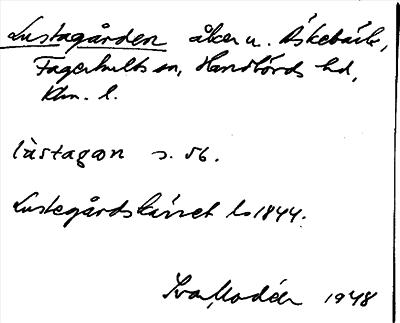 Lustagården åker u. Äskebäck,
Fagerhults sn, Handbörds hd,
Klm. l.
lùstagan s. 56.
Lustegårdskärret ls 1844.
Ivar Modéer 1948